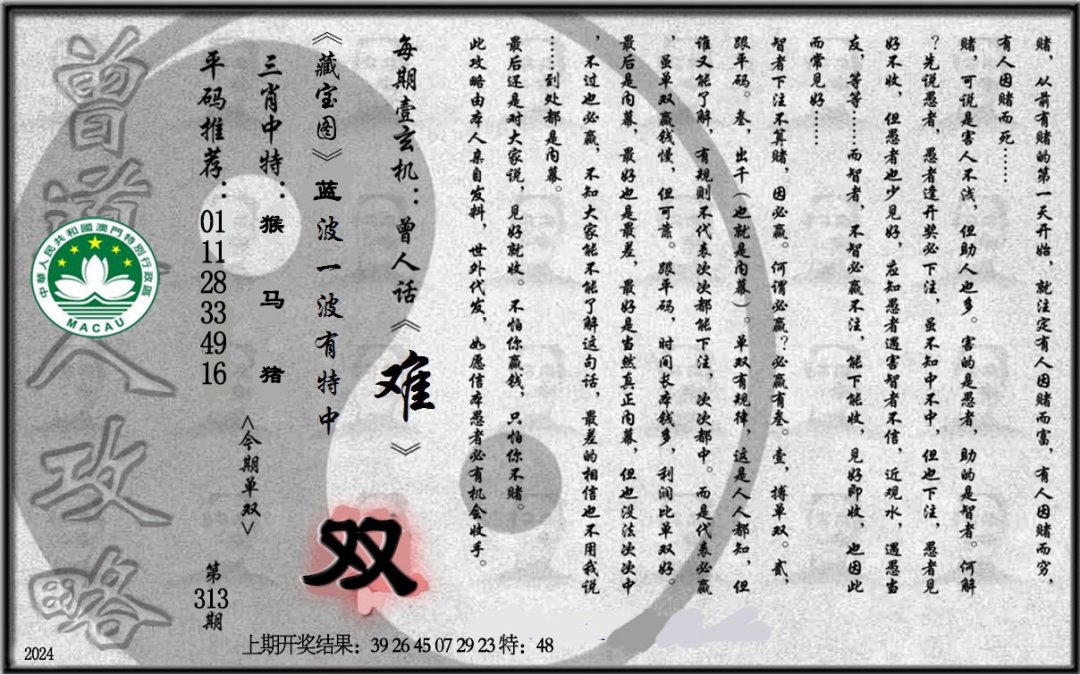 赌，从前有赌的第一天开始，就注定有人因赌而富，有人因赌而穷，
有人因赌而死……
赌，可说是害人不浅，但助人也多。害的是愚者，助的是智者。何解
？先说愚者，愚者逢开奖必下注，虽不知中不中，但也下注，愚者见
好不收，但愚者也少见好，应知愚者遇害智者不信，近观水，遇愚当
友，等等……而智者，不智必赢不注，能下能收，见好即收，也因此
而常见好……
智者下注不算赌，因必赢。何谓必赢？必赢有叁。壹，搏单双。贰，
跟平码。叁，出千（也就是内幕）。单双有规律，这是人人都知，但
谁又能了解，有规则不代表次次都能下注，次次都中。而是代表必赢
，虽单双赢钱慢，但可靠。跟平码，时间长本钱多，利润比单双好。
最后是内幕，最好也是最差，最好是当然真正内幕，但也没法次次中
，不过也必赢，不知大家能不能了解这句话，最差的相信也不用我说
……到处都是内幕。
最后还是对大家说，见好就收。不怕你赢钱，只怕你不赌。
此攻略由本人亲自发料，世外代发，如愿信本愚者必有机会收手。
每期壹玄机：曾人话《难》
《藏宝图》蓝波一波有特中
双
三肖中特：猴 马 猪
<今期单双>
平码推荐：01 11 28 33 49 16
第313期
曾道人攻略
中華人民共和國澳門特別行政區
MACAU
上期开奖结果：39 26 45 07 29 23 特：48
2024